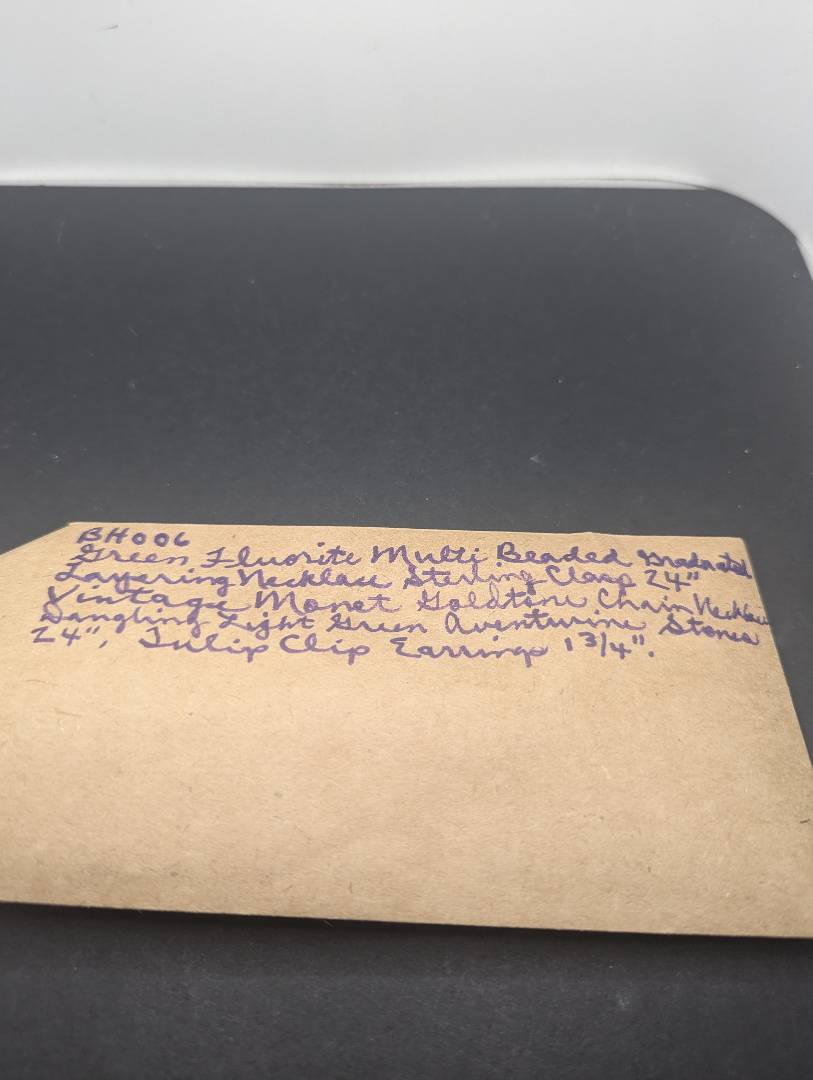 BH006
Green Fluorite Multi Beaded Graduated
Layering Necklace Sterling Clasp 24"
Vintage Monet Goldtone Chain Necklace
Dangling Light Green Aventurine Stones
24", Tulip Clip Earrings 1 3/4".